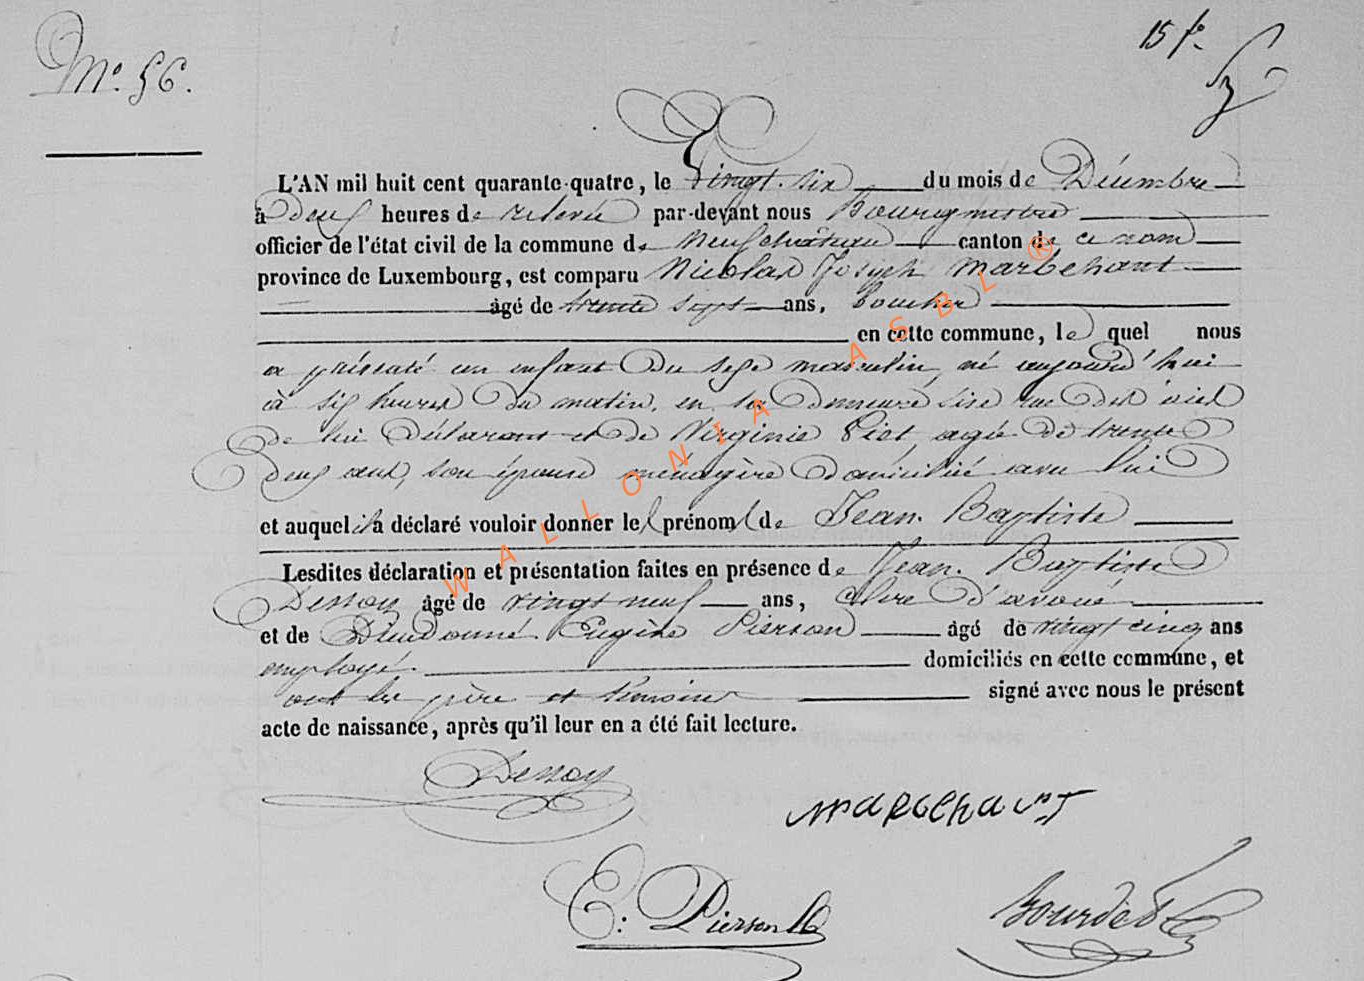 15 fo.
No. 56.
L'AN mil huit cent quarante-quatre, le vingt-six du mois de Décembre
à deux heures de relevée par-devant nous Bourgmestre
officier de l'état civil de la commune de Neufchâteau canton de ce nom
province de Luxembourg, est comparu Nicolas Joseph Marbehant
âgé de trente sept ans, boucher
en cette commune, le quel nous
a présenté un enfant du sexe masculin, né aujourd'hui
à six heures du matin, en sa demeure sise rue
de lui déclarant et de Virginie Piet agée de trente
deux ans, son épouse ménagère domiciliée avec lui
et auquel il a déclaré vouloir donner le prénom de Jean Baptiste
Lesdites déclaration et présentation faites en présence de Jean Baptiste
Dessoy âgé de vingt neuf ans, clerc d'avoué
et de Dieudonné Eugène Pierson âgé de vingt cinq ans
employé. domiciliés en cette commune, et
ont les père et témoins signé avec nous le présent
acte de naissance, après qu'il leur en a été fait lecture.
Dessoy
MARBEHANT
E: Pierson
Bourdé
WALLONIA ASBL ®